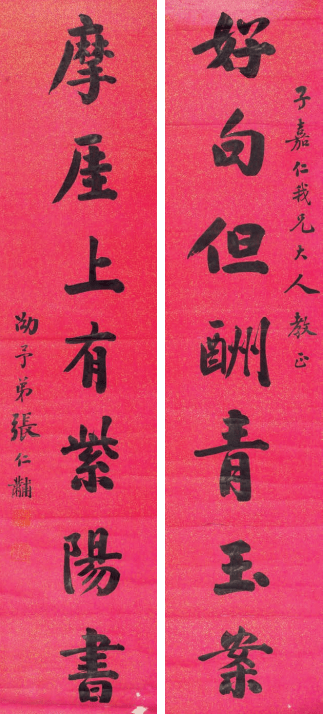 子嘉仁我兄大人教正
好句但酬青玉案
摩厓上有紫陽書
劭予弟張仁黼